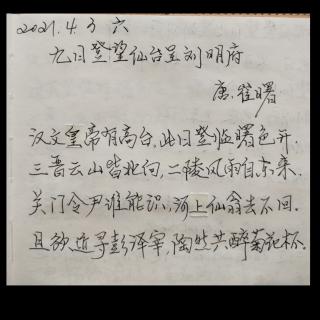 2021.4.3 六
九日登望仙台呈刘明府
唐.崔曙
汉文皇帝有高台,此日登临曙色开.
三晋云山皆北向,二陵风雨自东来.
关门令尹谁能识,河上仙翁去不回.
且欲近寻彭泽宰,陶然共醉菊花杯.